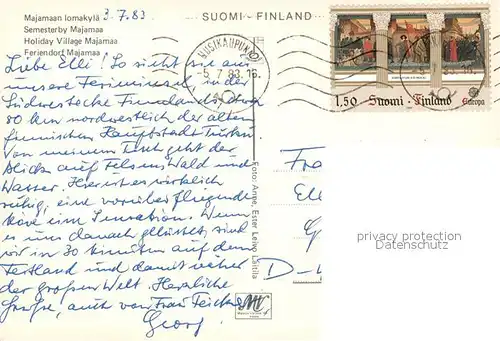 Majamaan lomakylä 3.7.83
Semesterby Majamaa
Holiday Village Majamaa
Feriendorf Majamaa
SUOMI-FINLAND
UUSIKAUPUNKI
5.7.83.16
1,50 Suomi·Finland
Europa
Liebe Elli! So sieht sie aus
unsere Ferieninsel in der
Südwestecke Finnlands, etwa
80 km nordwestlich der alten
finnischen Hauptstadt Turku.
Von meinem Tisch geht der
Blick auf Felsen, Wald und
Wasser. Hier ist es wirklich
ruhig, eine vorüberfliegende
Möve eine Sensation. Wenn
es uns danach gelüstet, sind
wir in 30 Minuten auf dem
Festland und damit näher
der großen Welt. Herzliche
Grüße, auch von Frau
Georg
Foto: Anne, Ester Leivo Laitila
Fra
Ell
G
D-
privacy protection
Datenschutz